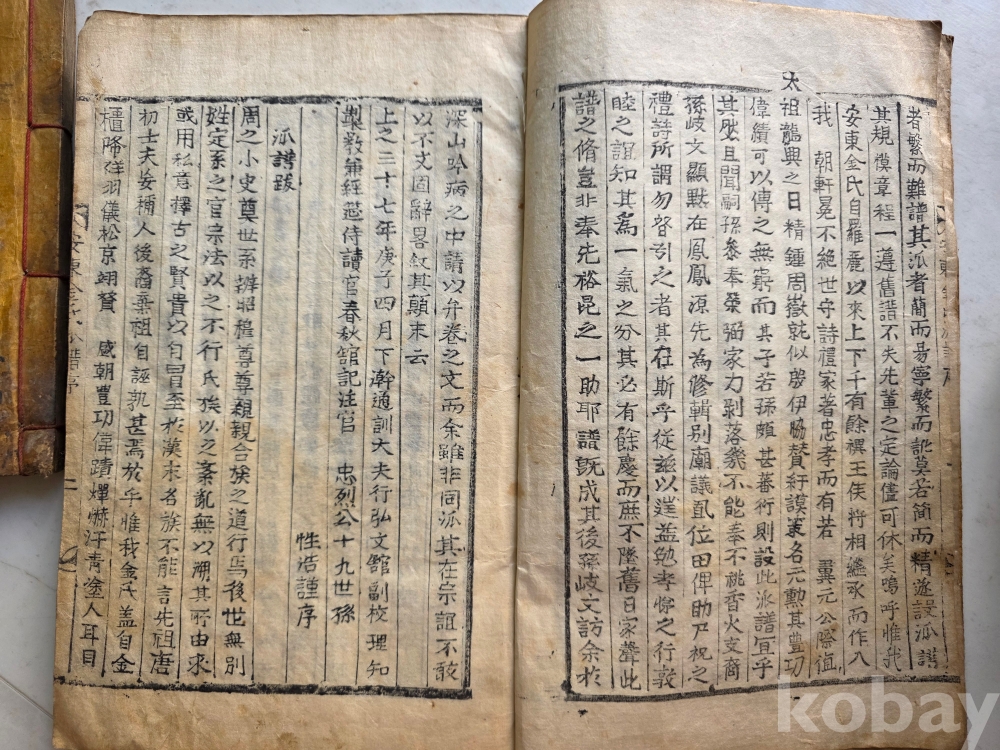 者繁而難譜其派者簡而易寧繁而訛莫若簡而精遂設派譜
其規模章程一遵舊譜不失先輩之定論僅可休矣嗚呼惟我
安東金氏自羅麗以來上下千有餘禩王侯將相繼承而作入
我 朝軒冕不絶世守詩禮家著忠孝而有若 翼元公際値
太祖龍興之日精鍾周嶽就似啓伊協贊紆謨策名元勲其豊功
偉績可以傳之無窮而其子若孫頗甚蕃衍則設此派譜宜乎
其然且聞嗣孫參奉榮弼家力剥落幾不能奉不祧香火支裔
孫岐文顯默在鳳鳳源先為修輯別廟議置位田俾助尸祝之
禮詩所謂勿替引之者其在斯乎從茲以進益勉孝悌之行敦
睦之誼知其為一氣之分其必有餘慶而庶不墜舊日家聲此
譜之脩豈非奉先裕昆之一助耶譜既成其後孫岐文訪余於
深山吟病之中請以弁卷之文而余雖非同派其在宗誼不敢
以不文固辭畧敘其顛末云
上之三十七年庚子四月下澣通訓大夫行弘文館副校理知
製教兼經莚侍讀官春秋館記注官 忠烈公十九世孫
性浩謹序
派譜跋
周之小史奠世系辨昭穆尊尊親親合族之道行焉後世無別
姓定系之官宗法以之不行氏族以之紊亂無以溯其所由求
或用私意擇古之賢貴以自冒至於漢末名族不能言先祖唐
初士夫妄稱人後裔棄祖自誣孰甚焉於乎惟我金氏盖自金
櫃降祥羽儀松京翊贊 盛朝豊功偉蹟燀爀汗青塗人耳目
kobay